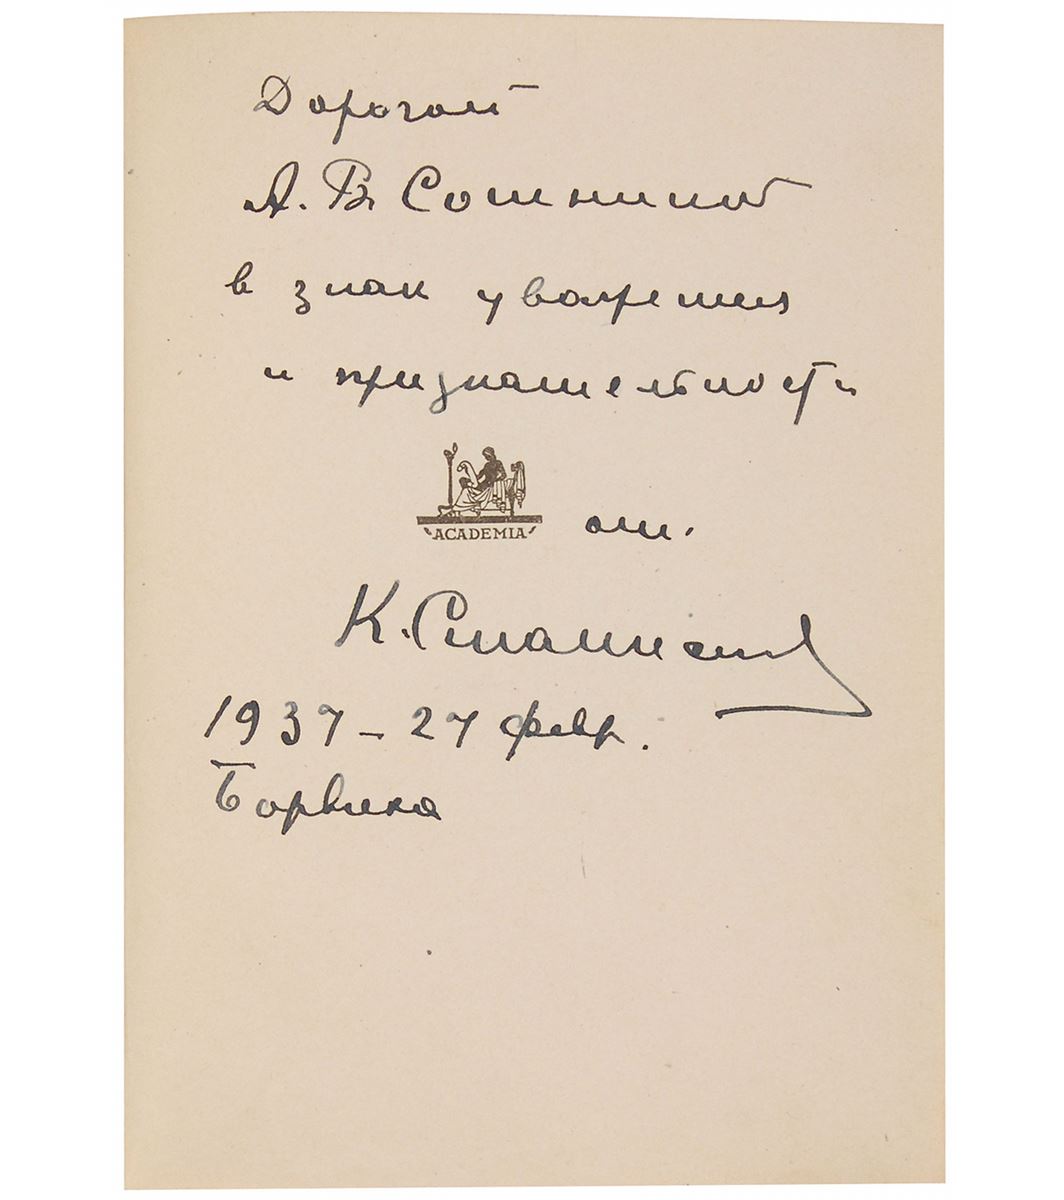 Дорогой
А. В. Сотниковой
в знак уважения
и признательности
ACADEMIA
от.
К. Станиславский
1937 – 27 февр.
Барвиха